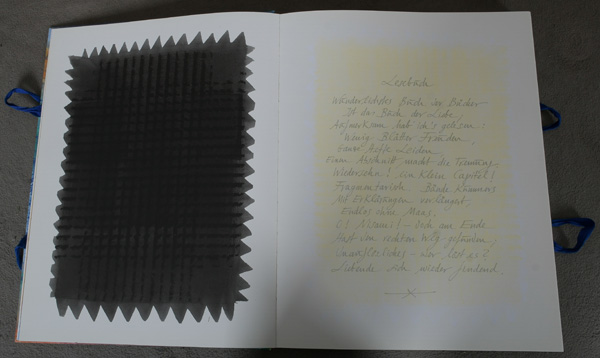 Lesebuch
Wunderlichstes Buch der Bücher
Ist das Buch der Liebe,
Aufmerksam hab' ich's gelesen:
Wenig Blätter Freuden,
Ganze Hefte Leiden,
Einen Abschnitt macht die Trennung.
Wiedersehn! ein klein Capitel!
Fragmentarisch. Bände Kummers
Mit Erklärungen verlängert,
Endlos ohne Maas.
O! Nisami! – doch am Ende
Hast den rechten Weg gefunden,
Unauflösliches – wer löst es?
Liebende sich wieder findend.